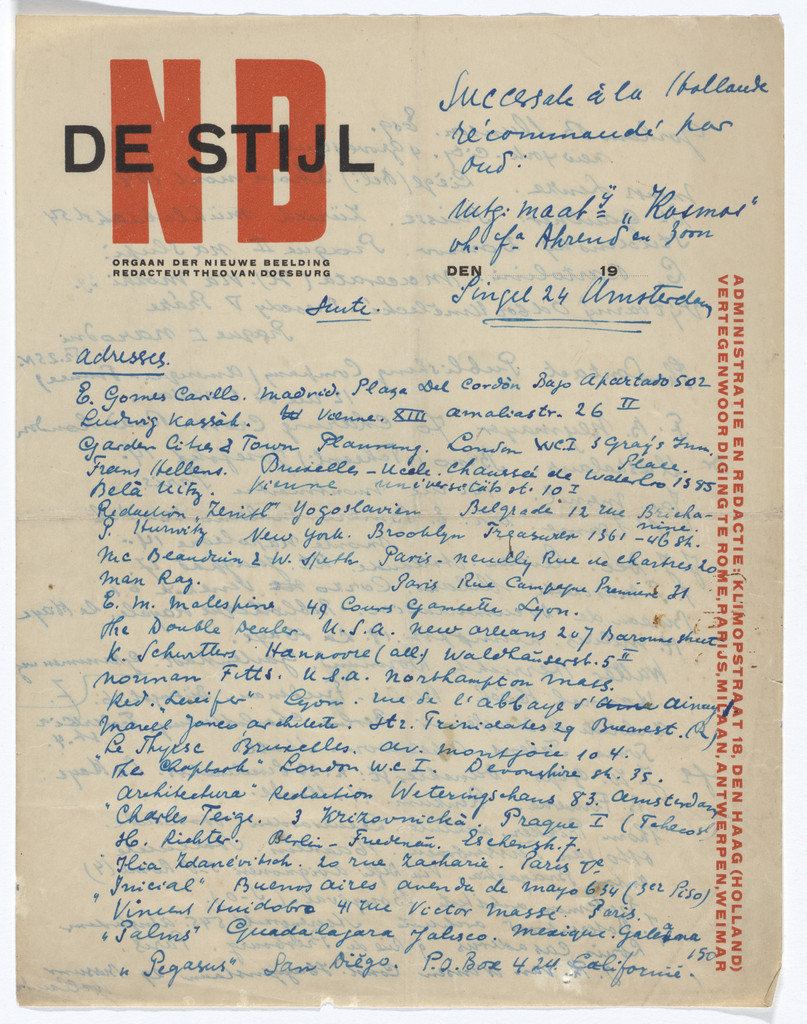 NB
DE STIJL
ORGAAN DER NIEUWE BEELDING
REDACTEUR THEO VAN DOESBURG
Succersale à la Hollande
récommandé par
Oud:
Uitg: maatij "Kosmos"
oh. fa Ahrend en Zoon
DEN 19
Singel 24 Amsterdam
Suite.
adresses.
E. Gomes Carillo. Madrid. Plaza Del Cordón Bajo Apartado 502
Ludwig Kassák. Vienne. XIII Amaliastr. 26 II
Garden Cities & Town Planning. London W.C.I 3 Gray's Inn.
Place.
Frans Hellens. Bruxelles - Uccle. Chaussée de Waterloo 1385
Belà Uitz. Vienne universetäts st. 10 I
Redaction "Zenit" Yogoslavien Belgrade 12 rue Bricha-
nine.
P. Hurwitz New York. Brooklyn Treasurer 1361 - 46 St.
Mc Beauduin & W. Speth Paris - neuilly Rue de Chartres 20
Man Ray. Paris Rue Campagne Première 31
E. M. Malespine 49 Cours Gambette Lyon.
The Double Dealer U.S.A. New Orleans 207 Baronne street
K. Schwitters Hannovre (all) Waldhäuserst. 5 II
Norman Fitts. U.S.A. Northampton Mass.
Red. "Lucifer" Lyon. rue de l'abbaye d'ainay
Marcel Janco architecte. Str. Trinidatei 29 Bucarest. (R)
"Le Thyrse Bruxelles. av. montjoie 104.
"The Chapbook" London W.C.I. Devonshire st. 35.
Architectura" Redaction Weteringschans 83. Amsterdam
"Charles Teige. 3 Krizovnická. Prague I (Tchecosl)
H. Richter. Berlin - Friedenau. Eschenstr. 7.
Ilia Zdanévitsch. 20 rue Zacharie. Paris Ve
"Inicial" Buenos Aires avenda de mayo 634 (3er Piso)
Vincent Huidobro 41 rue Victor Massé. Paris.
"Palms" Guadalajara Jalisco. Mexique. Galeana
150
"Pegasus" San Diégo. P.O. Box 424 Californie.
ADMINISTRATIE EN REDACTIE: KLIMOPSTRAAT 18, DEN HAAG (HOLLAND)
VERTEGENWOORDIGING TE ROME, PARIJS, MILAAN, ANTWERPEN, WEIMAR